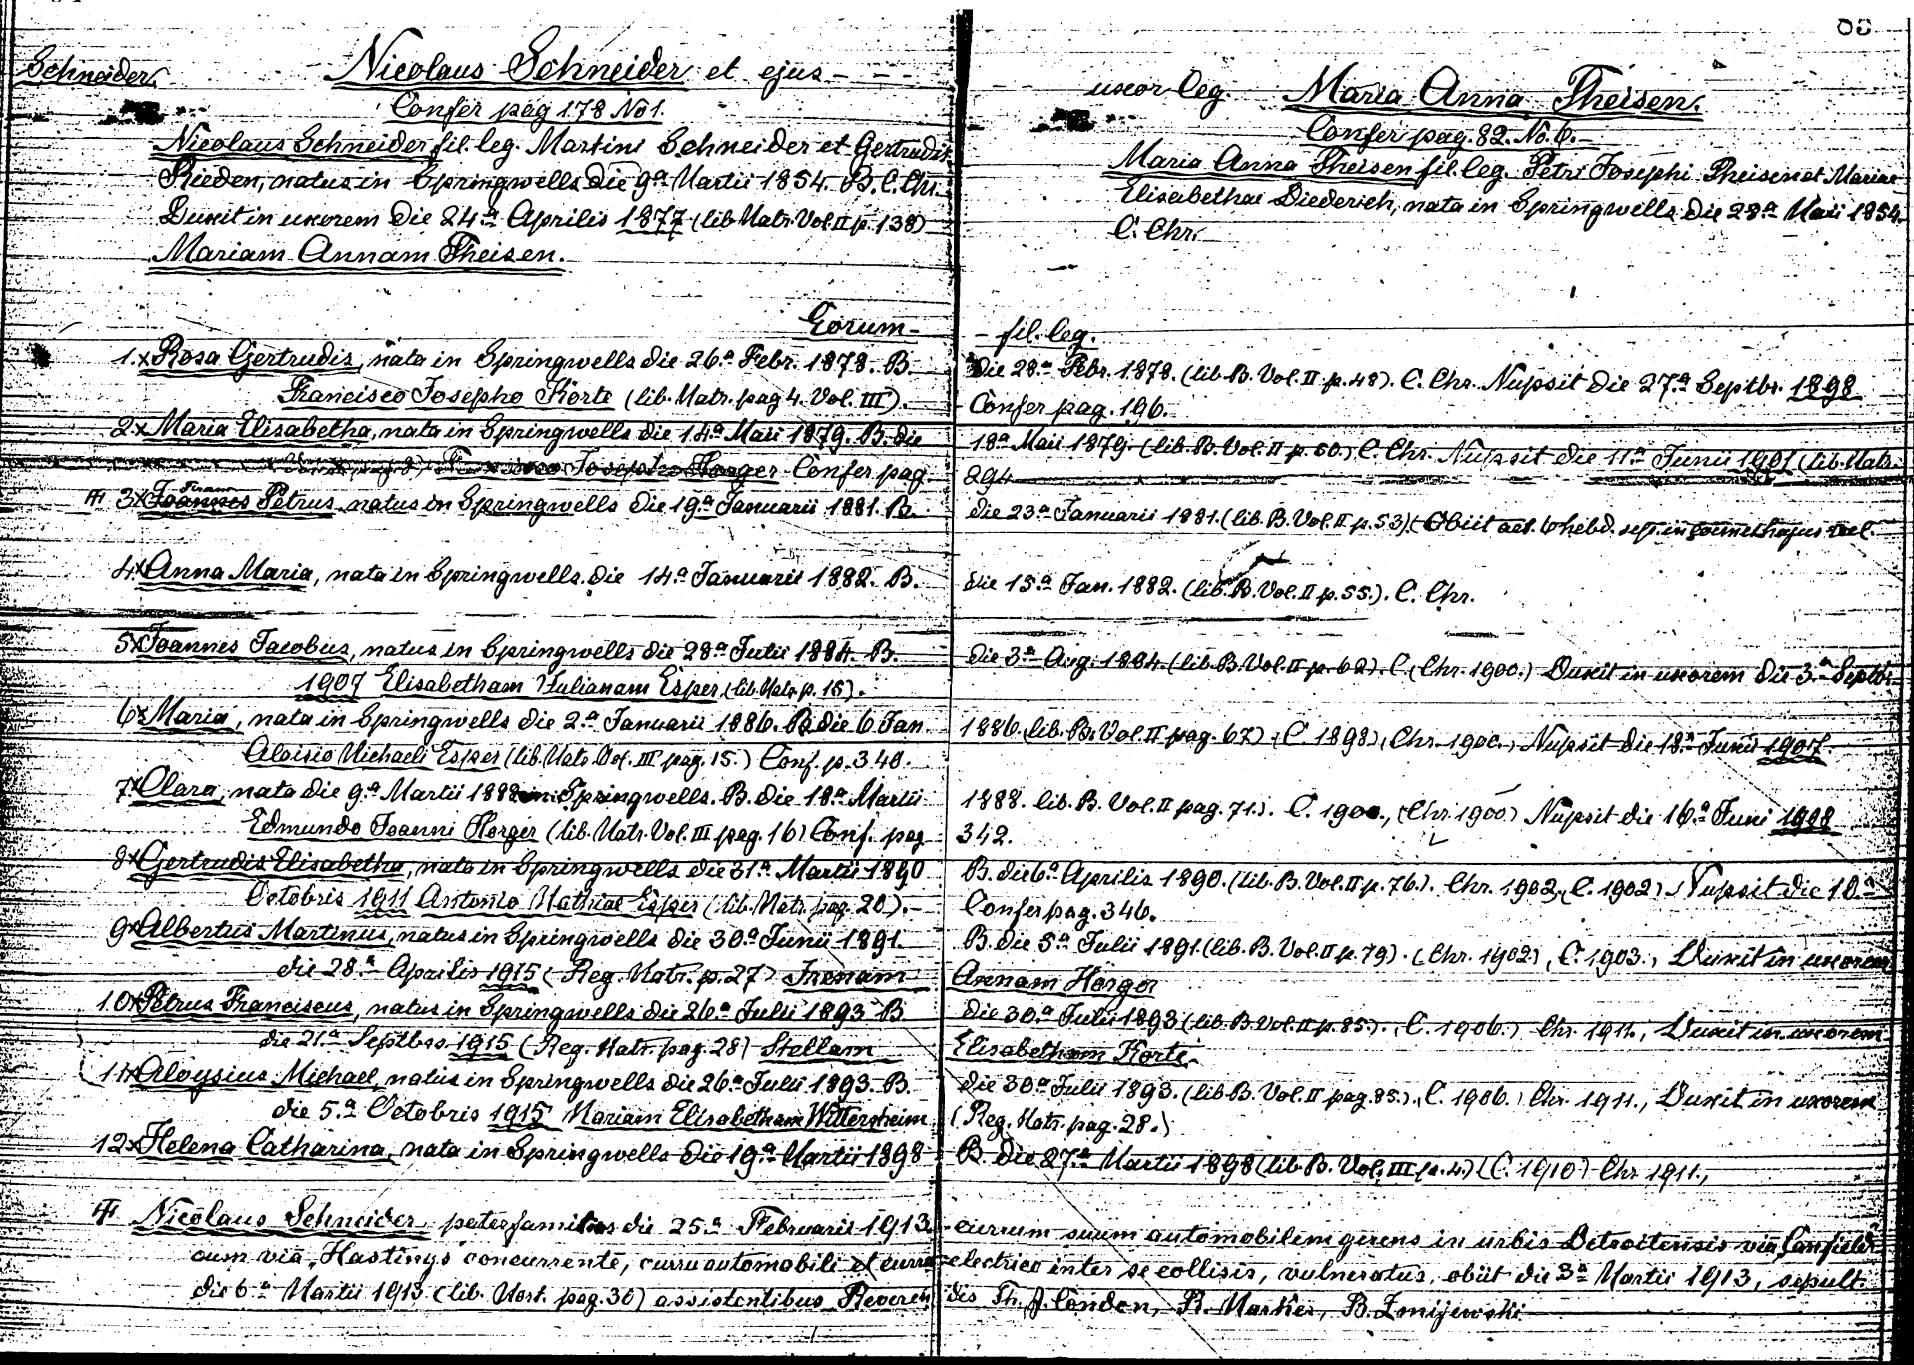 83
Schneider. Nicolaus Schneider et ejus - - -
uxor leg. Maria Anna Theisen.
Confer pag 178 No 1.
Confer pag. 82. No. 6.
Nicolaus Schneider fil. leg. Martini Schneider et Gertrudis
Rieden, natus in Springwells die 9a Martii 1854. B. C. Chr.
Duxit in uxorem die 24a Aprilis 1877 (lib. Matr. Vol. II p. 138)
Mariam Annam Theisen.
Maria Anna Theisen fil. leg. Petri Josephi Theisen et Mariae
Elisabethae Diederich, nata in Springwells die 28a Maii 1854.
C. Chr.
Eorum - - fil. leg.
1.x Rosa Gertrudis, nata in Springwells die 26a Febr. 1878. B. die 28a Febr. 1878. (lib. B. Vol. II p. 48). C. Chr. Nupsit die 27a Septbr. 1898
Francisco Josepho Körte (lib. Matr. pag 4. Vol. III). - Confer pag. 196.
2.x Maria Elisabetha, nata in Springwells die 14a Maii 1879. B. die 18a Maii 1879. (lib. B. Vol. II p. 50.) C. Chr. Nupsit die 11a Junii 1901 (lib. Matr.
Josepho Horger Confer pag. 294
3x Joannes Petrus, natus in Springwells die 19a Januarii 1881. B. die 23a Januarii 1881. (lib. B. Vol. II p. 53). Obiit aet. 6 hebd. sep. in
4.x Anna Maria, nata in Springwells die 14a Januarii 1882. B. die 15a Jan. 1882. (lib. B. Vol. II p. 55.). C. Chr.
5x Joannes Jacobus, natus in Springwells die 28a Julii 1884. B. die 3a Aug. 1884. (lib. B. Vol. II p. 62). C. (Chr. 1900.) Duxit in uxorem die 3a Septbr.
1907 Elisabetham Julianam Esper (lib. Matr. p. 15).
6x Maria, nata in Springwells die 2a Januarii 1886. B. die 6 Jan 1886. (lib. B. Vol. II pag. 67). (C. 1898), Chr. 1900.) Nupsit die 18a Junii 1907
Aloisio Michaeli Esper (lib. Matr. Vol. III pag. 15.) Conf. p. 340.
7.x Clara, nata die 9a Martii 1888 in Springwells. B. die 18a Martii 1888. lib. B. Vol. II pag. 71.). C. 1900., (Chr. 1900.) Nupsit die 16a Juni 1908
Edmundo Joanni Horger (lib. Matr. Vol. III pag. 16) Conf. pag 342.
8x Gertrudis Elisabetha, nata in Springwells die 31a Martii 1890 B. die 6a Aprilis 1890. (lib. B. Vol. II p. 76.). Chr. 1902, (C. 1902) Nupsit die 10.a
Octobris 1911 Antonio Mathiae Esper (lib. Matr. pag. 20). - Confer pag. 346.
9x Albertus Martinus, natus in Springwells die 30a Junii 1891. B. die 5a Julii 1891. (lib. B. Vol. II p. 79). (Chr. 1902), C. 1903., Duxit in uxorem
die 28a Aprilis 1915 (Reg. Matr. p. 27) Irenam Annam Horger
10x Petrus Franciscus, natus in Springwells die 26a Julii 1893 B. die 30a Julii 1893 (lib. B. Vol. II p. 85.). (C. 1906.) Chr. 1911., Duxit in uxorem
die 21a Septbr. 1915 (Reg. Matr. pag. 28) Stellam Elisabetham Korte.
11x Aloysius Michael, natus in Springwells die 26a Julii 1893. B. die 30a Julii 1893. (lib. B. Vol. II pag. 85.)., C. 1906.) Chr. 1911., Duxit in uxorem
die 5.a Octobris 1915 Mariam Elisabetham Wittersheim (Reg. Matr. pag. 28.)
12x Helena Catharina, nata in Springwells die 19a Martii 1898 B. die 27a Martii 1898 (lib. B. Vol. III p. 4) (C. 1910) Chr 1911.,
Nicolaus Schneider paterfamilias die 25.a Februarii 1913 currum suum automobilem gerens in urbis Detroitensis via "Canfield"
cum via "Hastings" concurrente, curru automobili et curru electrico inter se collisis, vulneratus, obiit die 3a Martii 1913, sepult.
die 6a Martii 1913 (lib. Mort. pag. 30) assistentibus Reverendis Th. J. London, R. Markes, B. Zmijewski